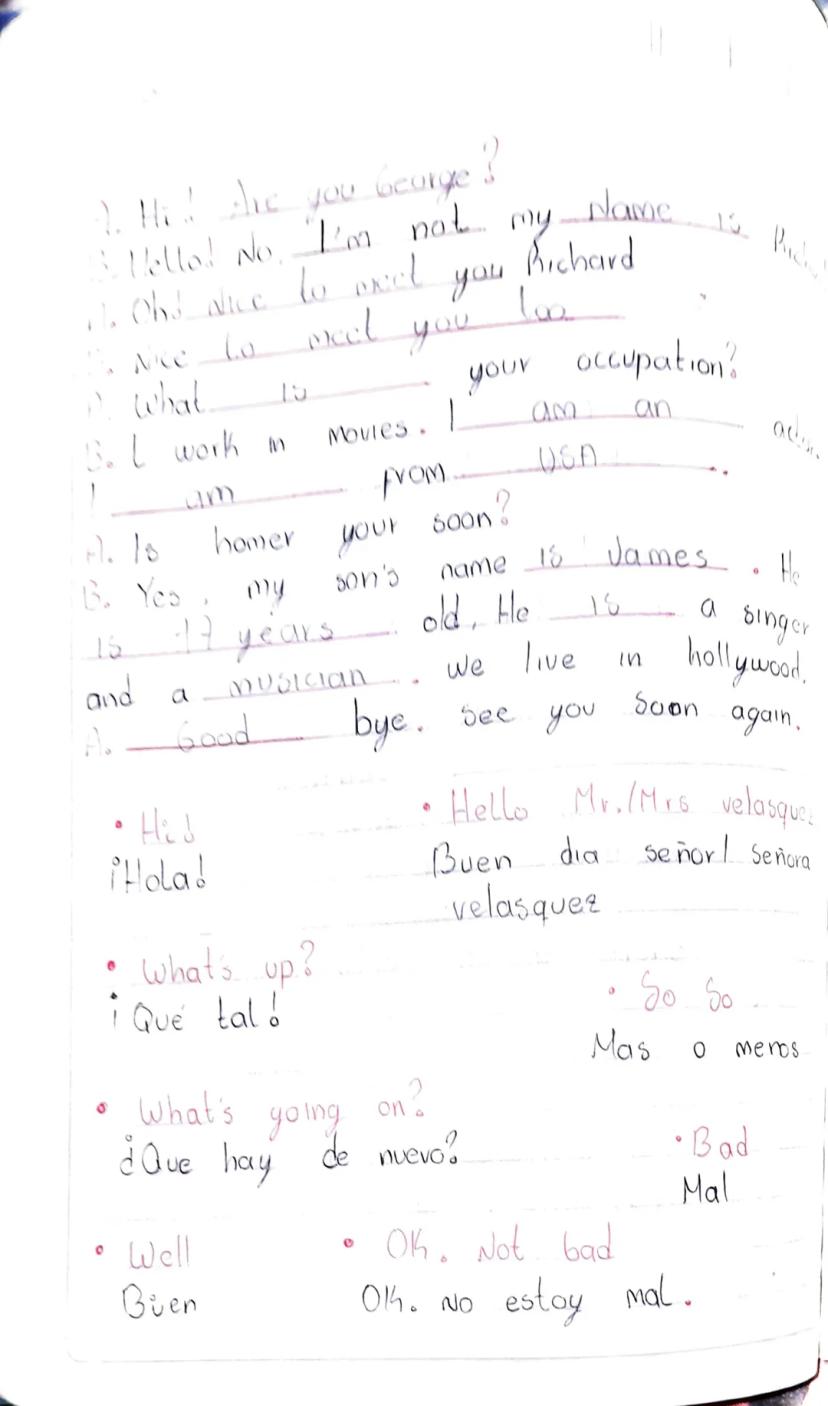 A. Hi! Are you George?
B. Hello! No, I'm not my Name is
A. Oh! Nice to meet you Richard
B. Nice to meet you too
A. What is your occupation?
B. I work in Movies. I am an
I am from USA.
A. Is homer your soon?
B. Yes, my son's name is James. He
is 17 years old, He is a singer
and a musician. We live in hollywood.
A. Good bye. See you Soon again.
• Hi!
¡Hola!
• Hello Mr./Mrs velasquez
Buen dia señor/ señora
velasquez
• What's up?
¡Qué tal!
• So So
Mas o menos
• What's going on?
¿Que hay de nuevo?
• Bad
Mal
• Well
Bien
• OK. Not bad
OK. No estoy mal.